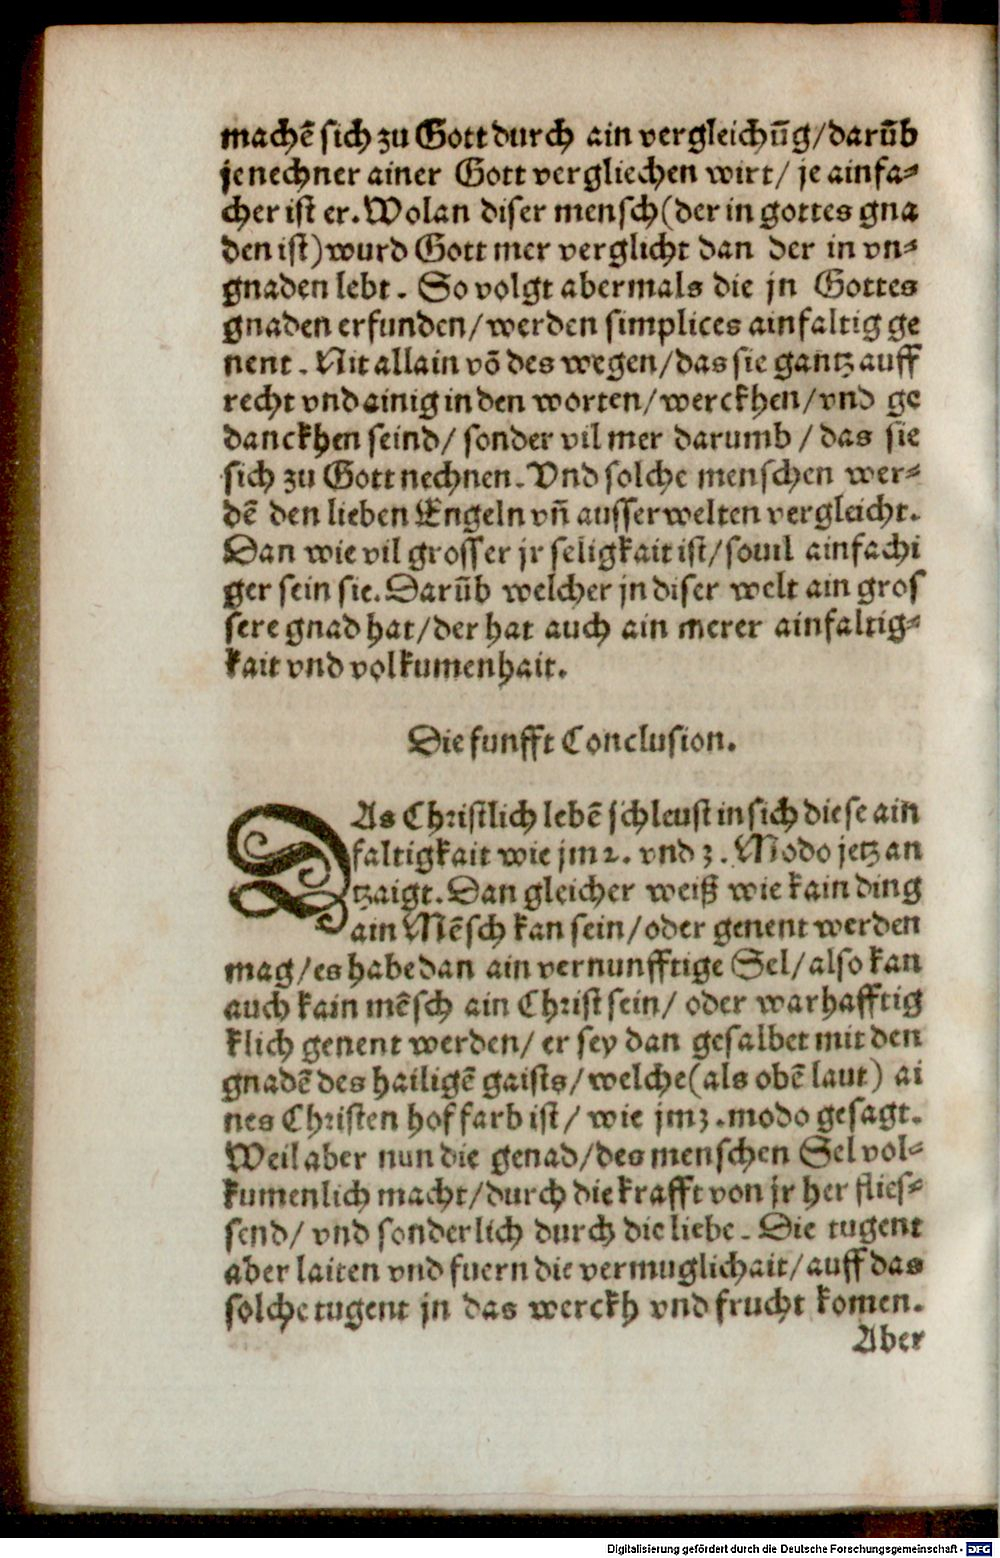 machē sich zu Gott durch ain vergleichūg/darūb
je nechner ainer Gott vergliechen wirt/ je ainfa⸗
cher ist er. Wolan diser mensch (der in gottes gna
den ist) wurd Gott mer verglicht dan der in vn⸗
gnaden lebt. So volgt abermals die jn Gottes
gnaden erfunden/werden simplices ainfaltig ge
nent. Nit allain vō des wegen/das sie gantz auff
recht vnd ainig in den worten/werckhen/vnd ge
danckhen seind/ sonder vil mer darumb/das sie
sich zu Gott nechnen. Vnd solche menschen wer⸗
dē den lieben Engeln vñ ausserwelten vergleicht.
Dan wie vil grosser jr seligkait ist/souil ainfachi
ger sein sie. Darūb welcher jn diser welt ain gros
sere gnad hat/der hat auch ain merer ainfaltig⸗
kait vnd volkumenhait.
Die funfft Conclusion.
DAs Christlich lebē schleust in sich diese ain
faltigkait wie jm 2. vnd 3. Modo jetz an
tzaigt. Dan gleicher weiß wie kain ding
ain Mēsch kan sein/oder genent werden
mag/es habe dan ain vernunfftige Sel/also kan
auch kain mēsch ain Christ sein/ oder warhafftig
klich genent werden/ er sey dan gesalbet mit den
gnadē des hailigē gaists/welche (als obē laut) ai
nes Christen hoffarb ist/ wie jm 3. modo gesagt.
Weil aber nun die genad/des menschen Sel vol⸗
kumenlich macht/durch die krafft von jr her flies⸗
send/ vnd sonderlich durch die liebe. Die tugent
aber laiten vnd fuern die vermuglichait/auff das
solche tugent jn das werckh vnd frucht komen.
Aber
Digitalisierung gefördert durch die Deutsche Forschungsgemeinschaft - DFG